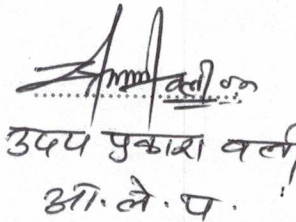 उदय प्रकाश वर्ल
आ. ले. प.